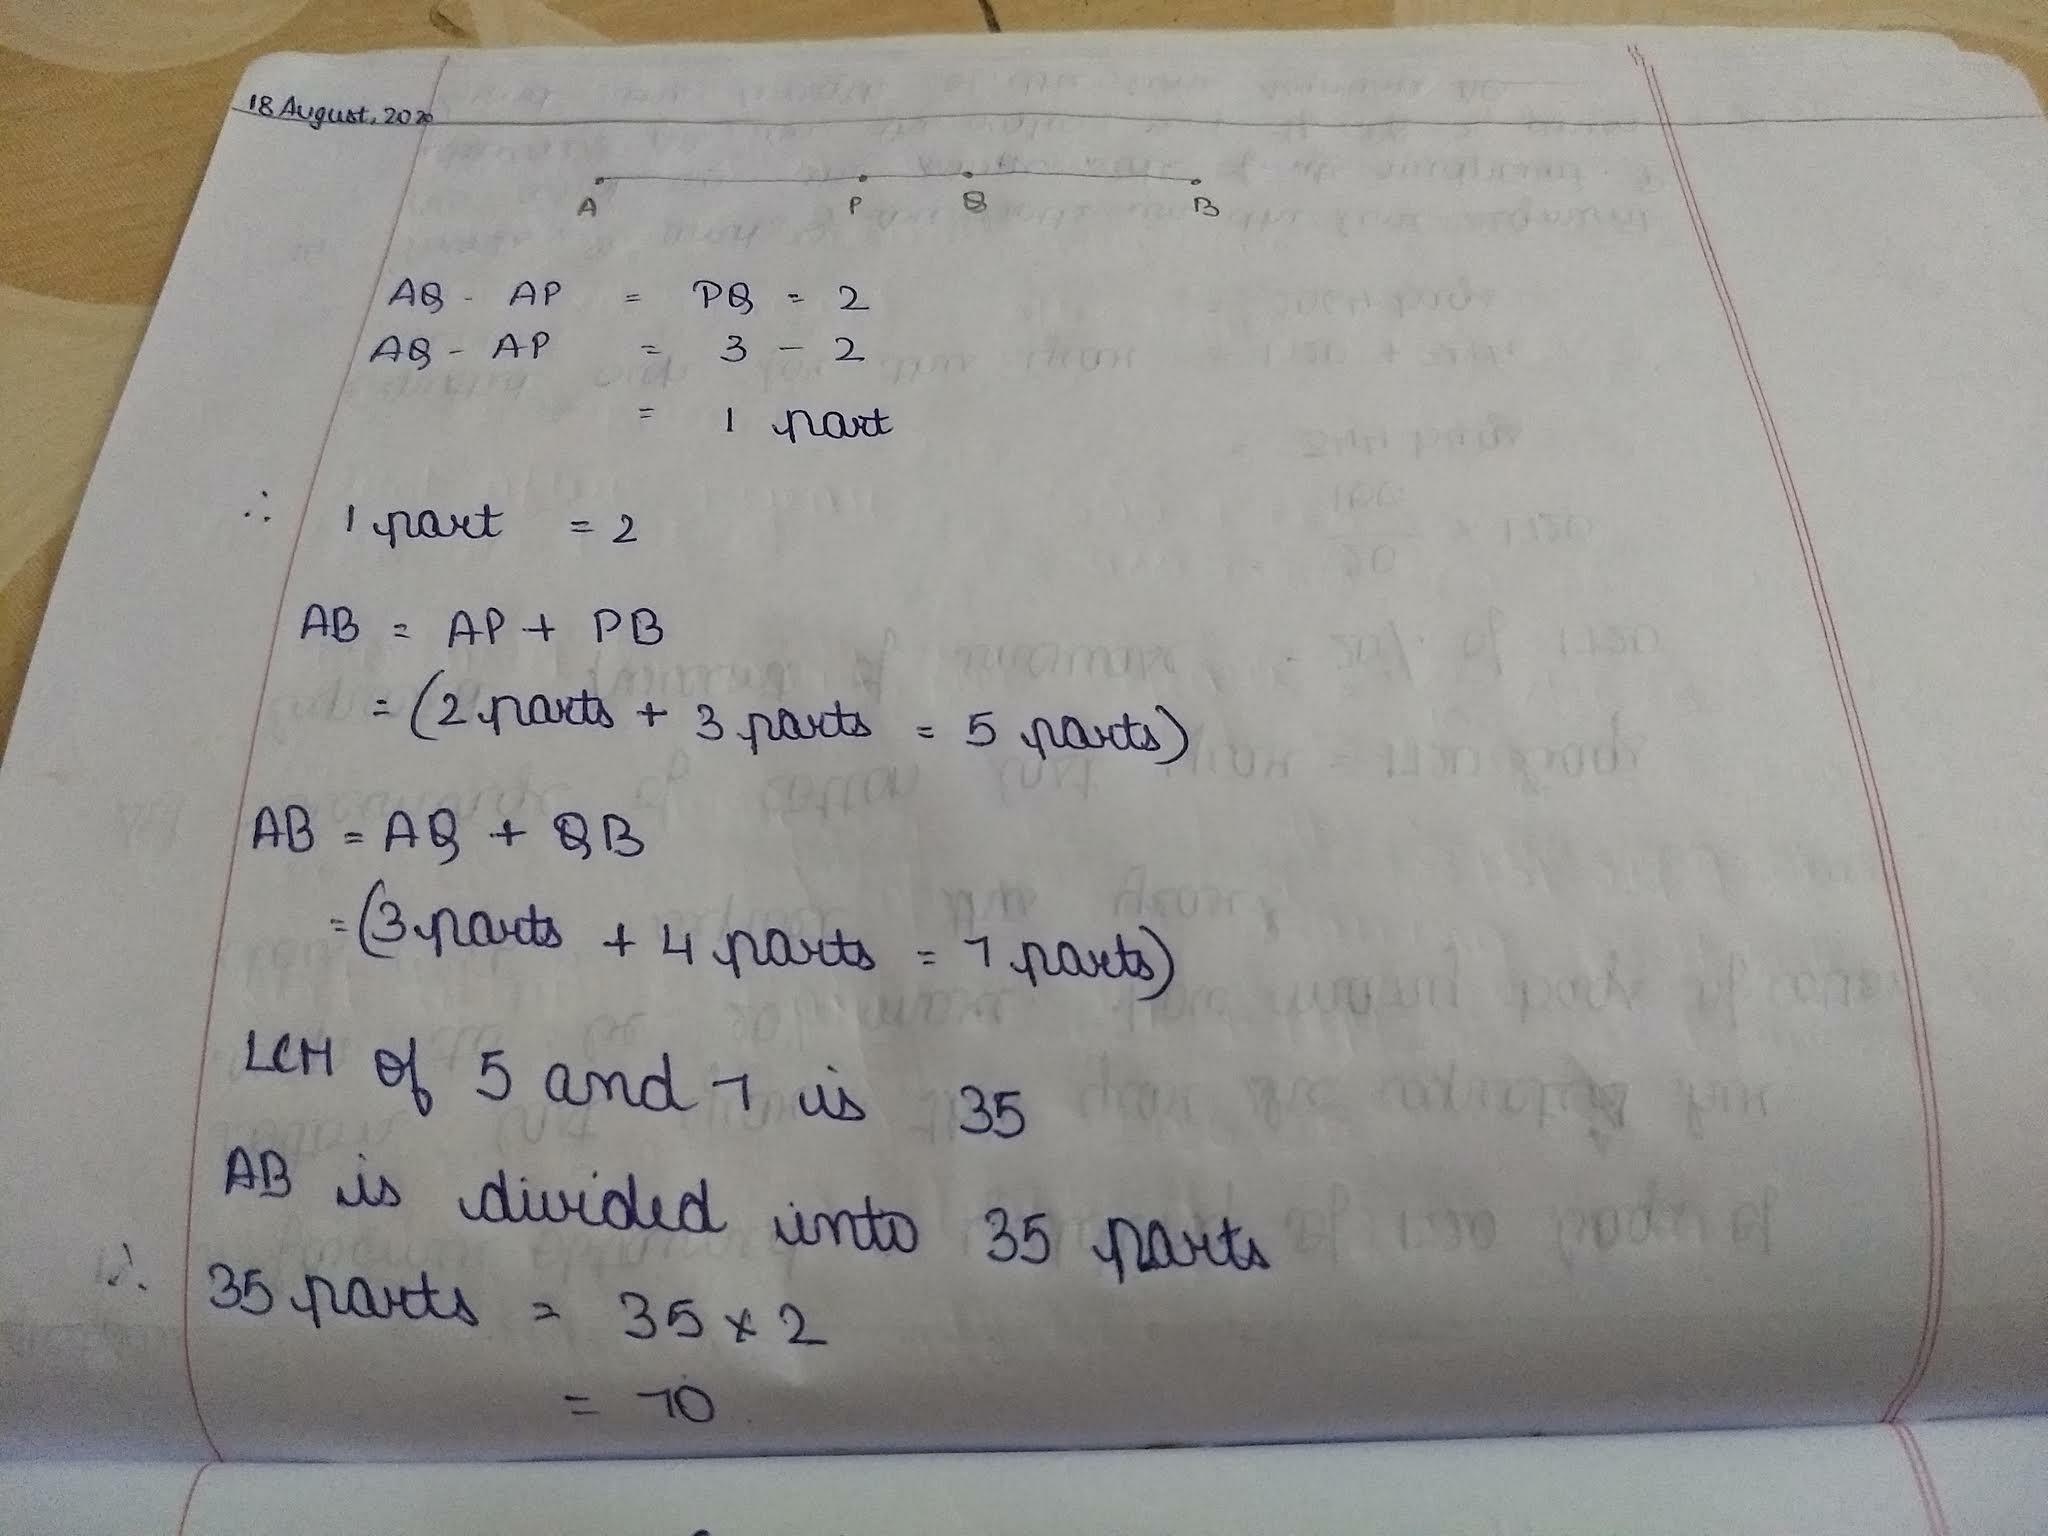 18 August, 2020
A P Q B
AQ - AP = PQ = 2
AQ - AP = 3 - 2
= 1 part
∴ 1 part = 2
AB = AP + PB
= (2 parts + 3 parts = 5 parts)
AB = AQ + QB
= (3 parts + 4 parts = 7 parts)
LCM of 5 and 7 is 35
AB is divided into 35 parts
∴ 35 parts = 35 × 2
= 70